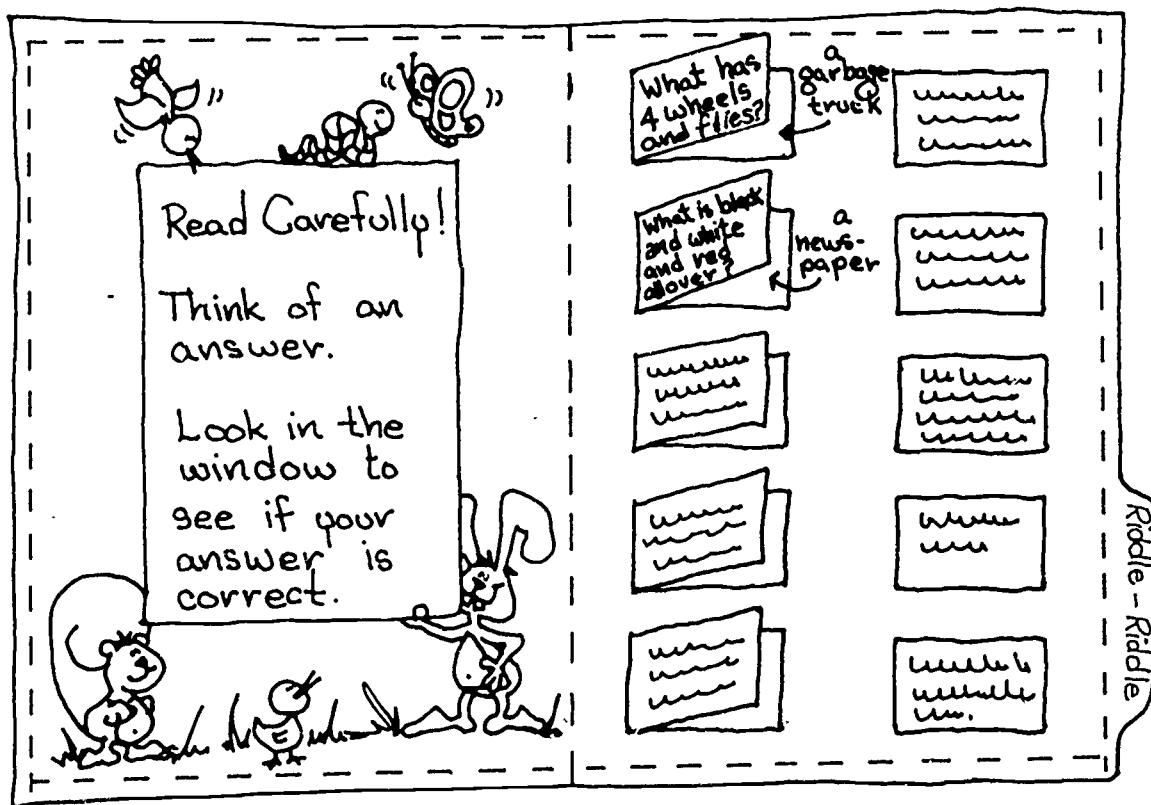 Read Carefully!
Think of an
answer.
Look in the
window to
see if your
answer is
correct.
What has
4 wheels
and flies?
a
garbage
truck
What is black
and white
and red
all over?
a
news-
paper
Riddle - Riddle